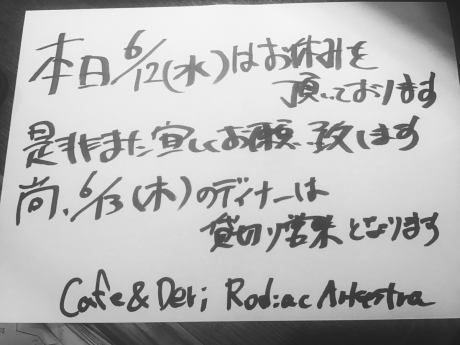 本日6/12(水)はお休みを
頂いております
是非また宜しくお願い致します
尚、6/13(木)のディナーは
貸切り営業となります
Cafe & Deri Rodiac Arkestra